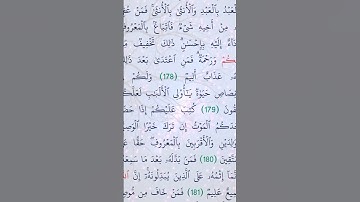 لْعَبْدُ بِٱلْعَبْدِ وَٱلْأُنثَىٰ بِٱلْأُنثَىٰ ۚ فَمَنْ عُفِ
مِنْ أَخِيهِ شَىْءٌ فَٱتِّبَاعٌۢ بِٱلْمَعْرُوفِ
دَآءٌ إِلَيْهِ بِإِحْسَٰنٍ ۗ ذَٰلِكَ تَخْفِيفٌ مِّ
كُمْ وَرَحْمَةٌ ۗ فَمَنِ ٱعْتَدَىٰ بَعْدَ ذَٰلِ
هُۥ عَذَابٌ أَلِيمٌ (178) وَلَكُمْ
قِصَاصِ حَيَوٰةٌ يَٰٓأُو۟لِى ٱلْأَلْبَٰبِ لَعَلَّكُ
تَّقُونَ (179) كُتِبَ عَلَيْكُمْ إِذَا حَضَ
حَدَكُمُ ٱلْمَوْتُ إِن تَرَكَ خَيْرًا ٱلْوَصِ
لْوَٰلِدَيْنِ وَٱلْأَقْرَبِينَ بِٱلْمَعْرُوفِ ۖ حَقًّا عَ
مُتَّقِينَ (180) فَمَنۢ بَدَّلَهُۥ بَعْدَ مَا سَمِعَهُ
مَآ إِثْمُهُۥ عَلَى ٱلَّذِينَ يُبَدِّلُونَهُۥٓ ۚ إِنَّ ٱل
مِيعٌ عَلِيمٌ (181) فَمَنْ خَافَ مِن مُّوصٍ